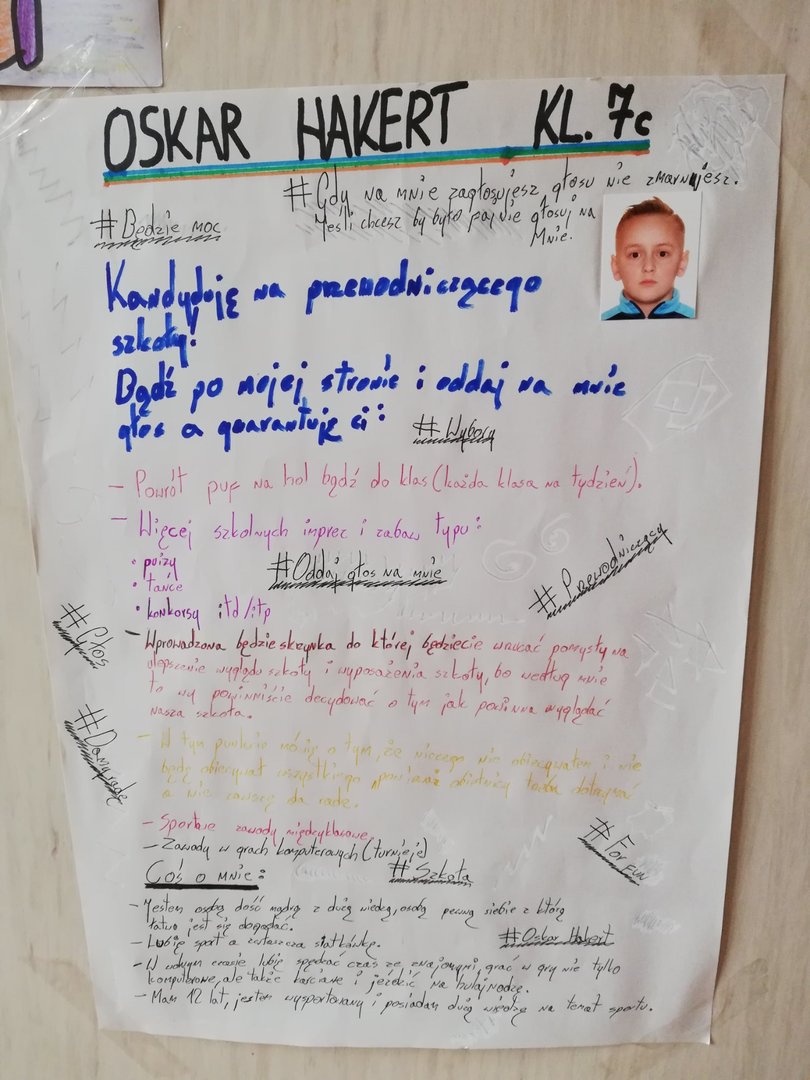 OSKAR HAKERT KL. 7c
#Gdy na mnie zagłosujesz, głosu nie zmarnujesz.
Jeśli chcesz by było fajnie głosuj na
Mnie.
#Będzie moc
Kandyduję na przewodniczącego
szkoły!
Bądź po mojej stronie i oddaj na mnie
głos a guarantuję ci:
#Wybory
- Powrót puf na hol bądź do klas (każda klasa na tydzień).
- Więcej szkolnych imprez i zabaw typu:
• quizy
• tańce
• konkorsy itd/itp
#Oddaj głos na mnie
#Przewodniczący
#Głos
- Wprowadzona będzie skrzynka do której będziecie wrzucać pomysły na
ulepszenie wyglądu szkoły i wyposażenia szkoły, bo według mnie
to wy powinniście decydować o tym jak powinna wyglądać
nasza szkoła.
#Damy radę
- W tym punkcie mówię o tym, że niczego nie obiecywałem i nie
będę obiecywał wszystkiego, ponieważ obietnicy trzeba dotrzymać
a nie zawsze da radę.
- Sportowe zawody międzyklasowe.
- Zawody w grach komputerowych (turnieje)
#For fun
Coś o mnie:
#Szkoła
- Jestem osobą dość mądrą z dużą wiedzą, osobą pewną siebie z którą
łatwo jest się dogadać.
- Lubię sport a zwłaszcza siatkówkę.
#Oskar Hakert
- W wolnym czasie lubię spędzać czas ze znajomymi, grać w gry nie tylko
komputerowe, ale także karciane i jeździć na hulajnodze.
- Mam 12 lat, jestem wysportowany i posiadam dużą wiedzę na temat sportu.